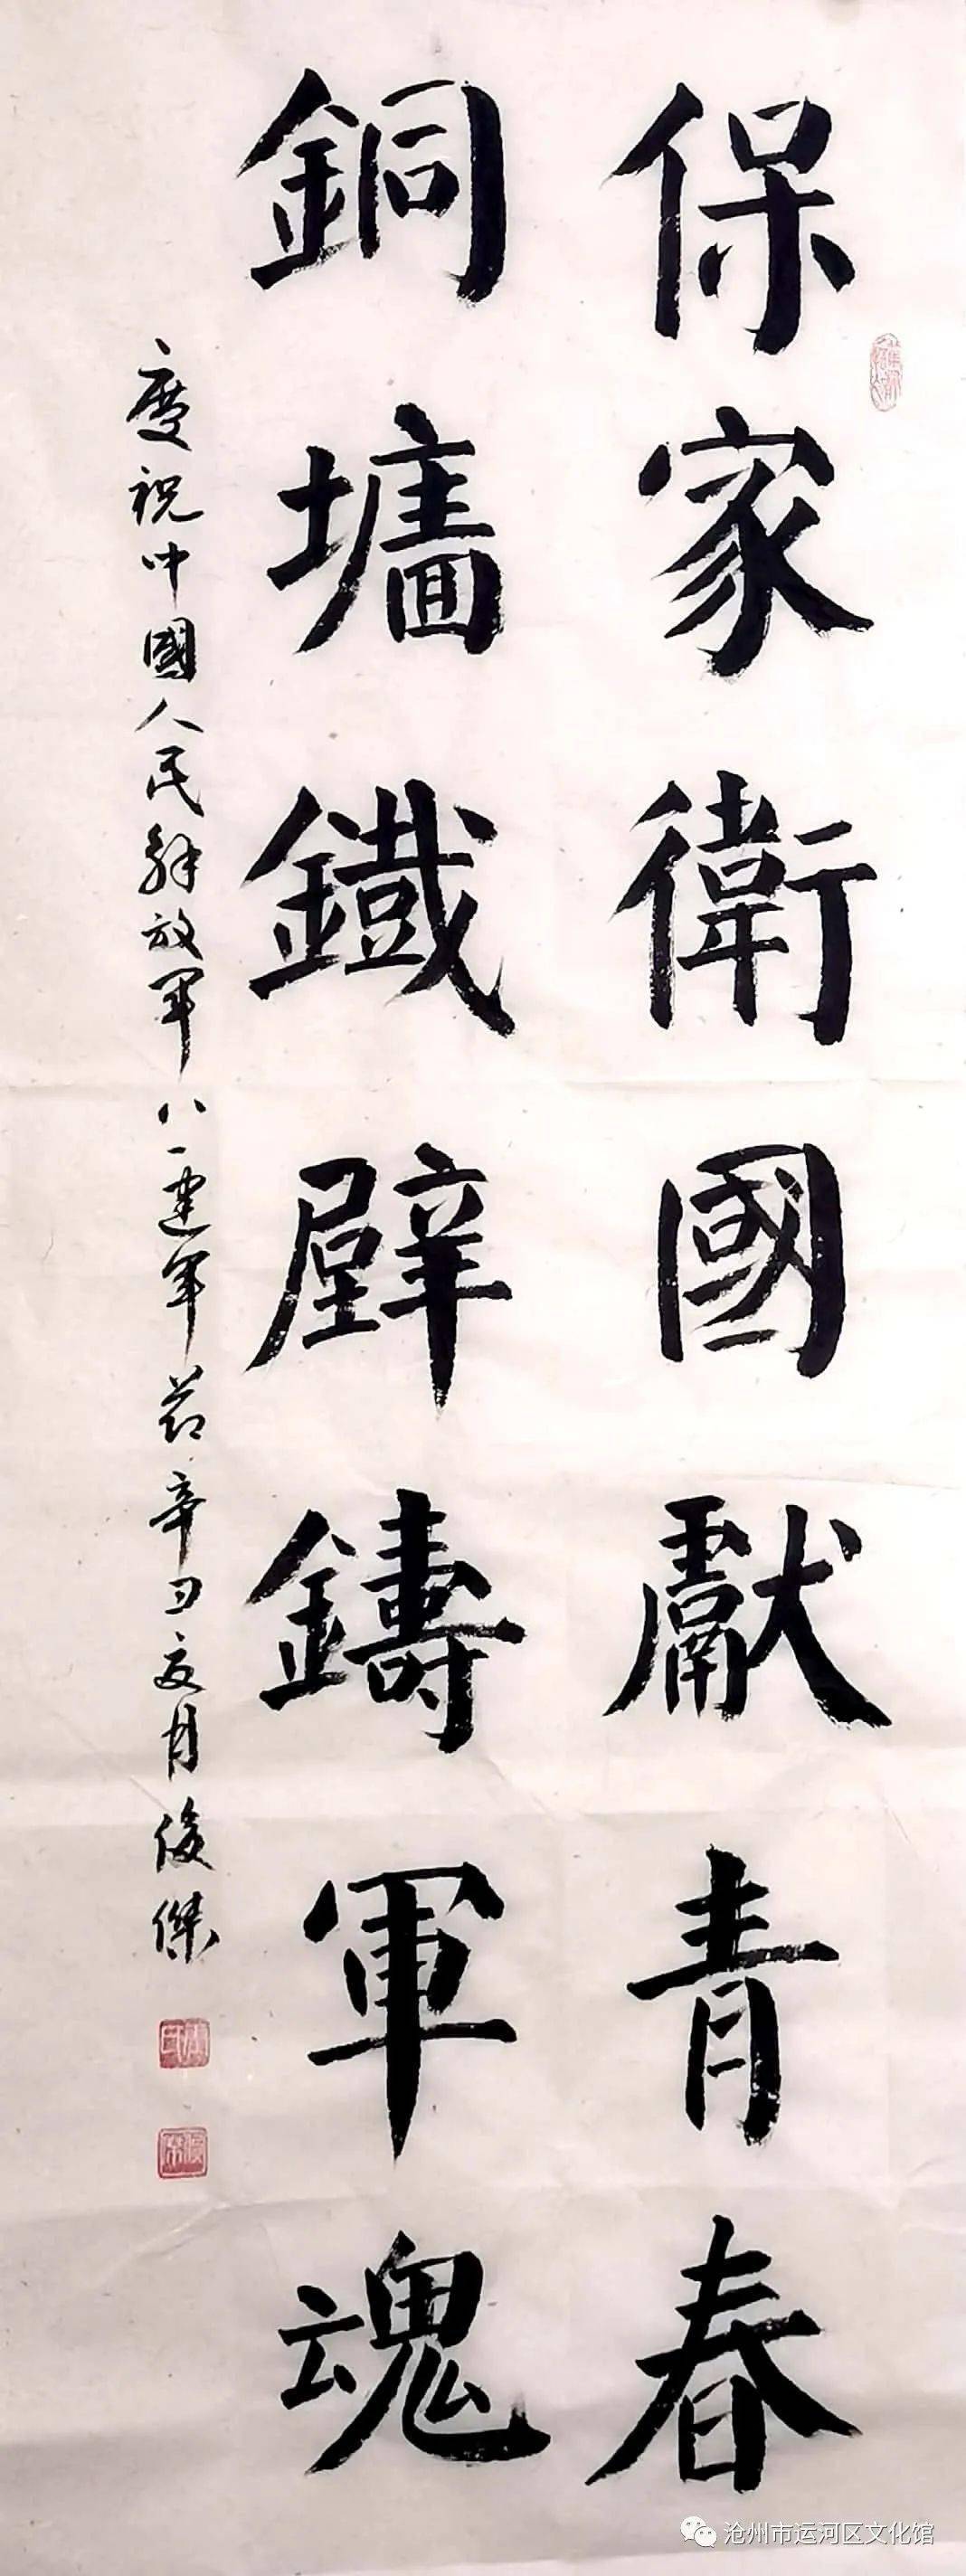 保家衛國獻青春
銅墻鐵壁鑄軍魂
慶祝中國人民解放軍八一建軍节辛丑夏月俊傑
沧州市运河区文化馆